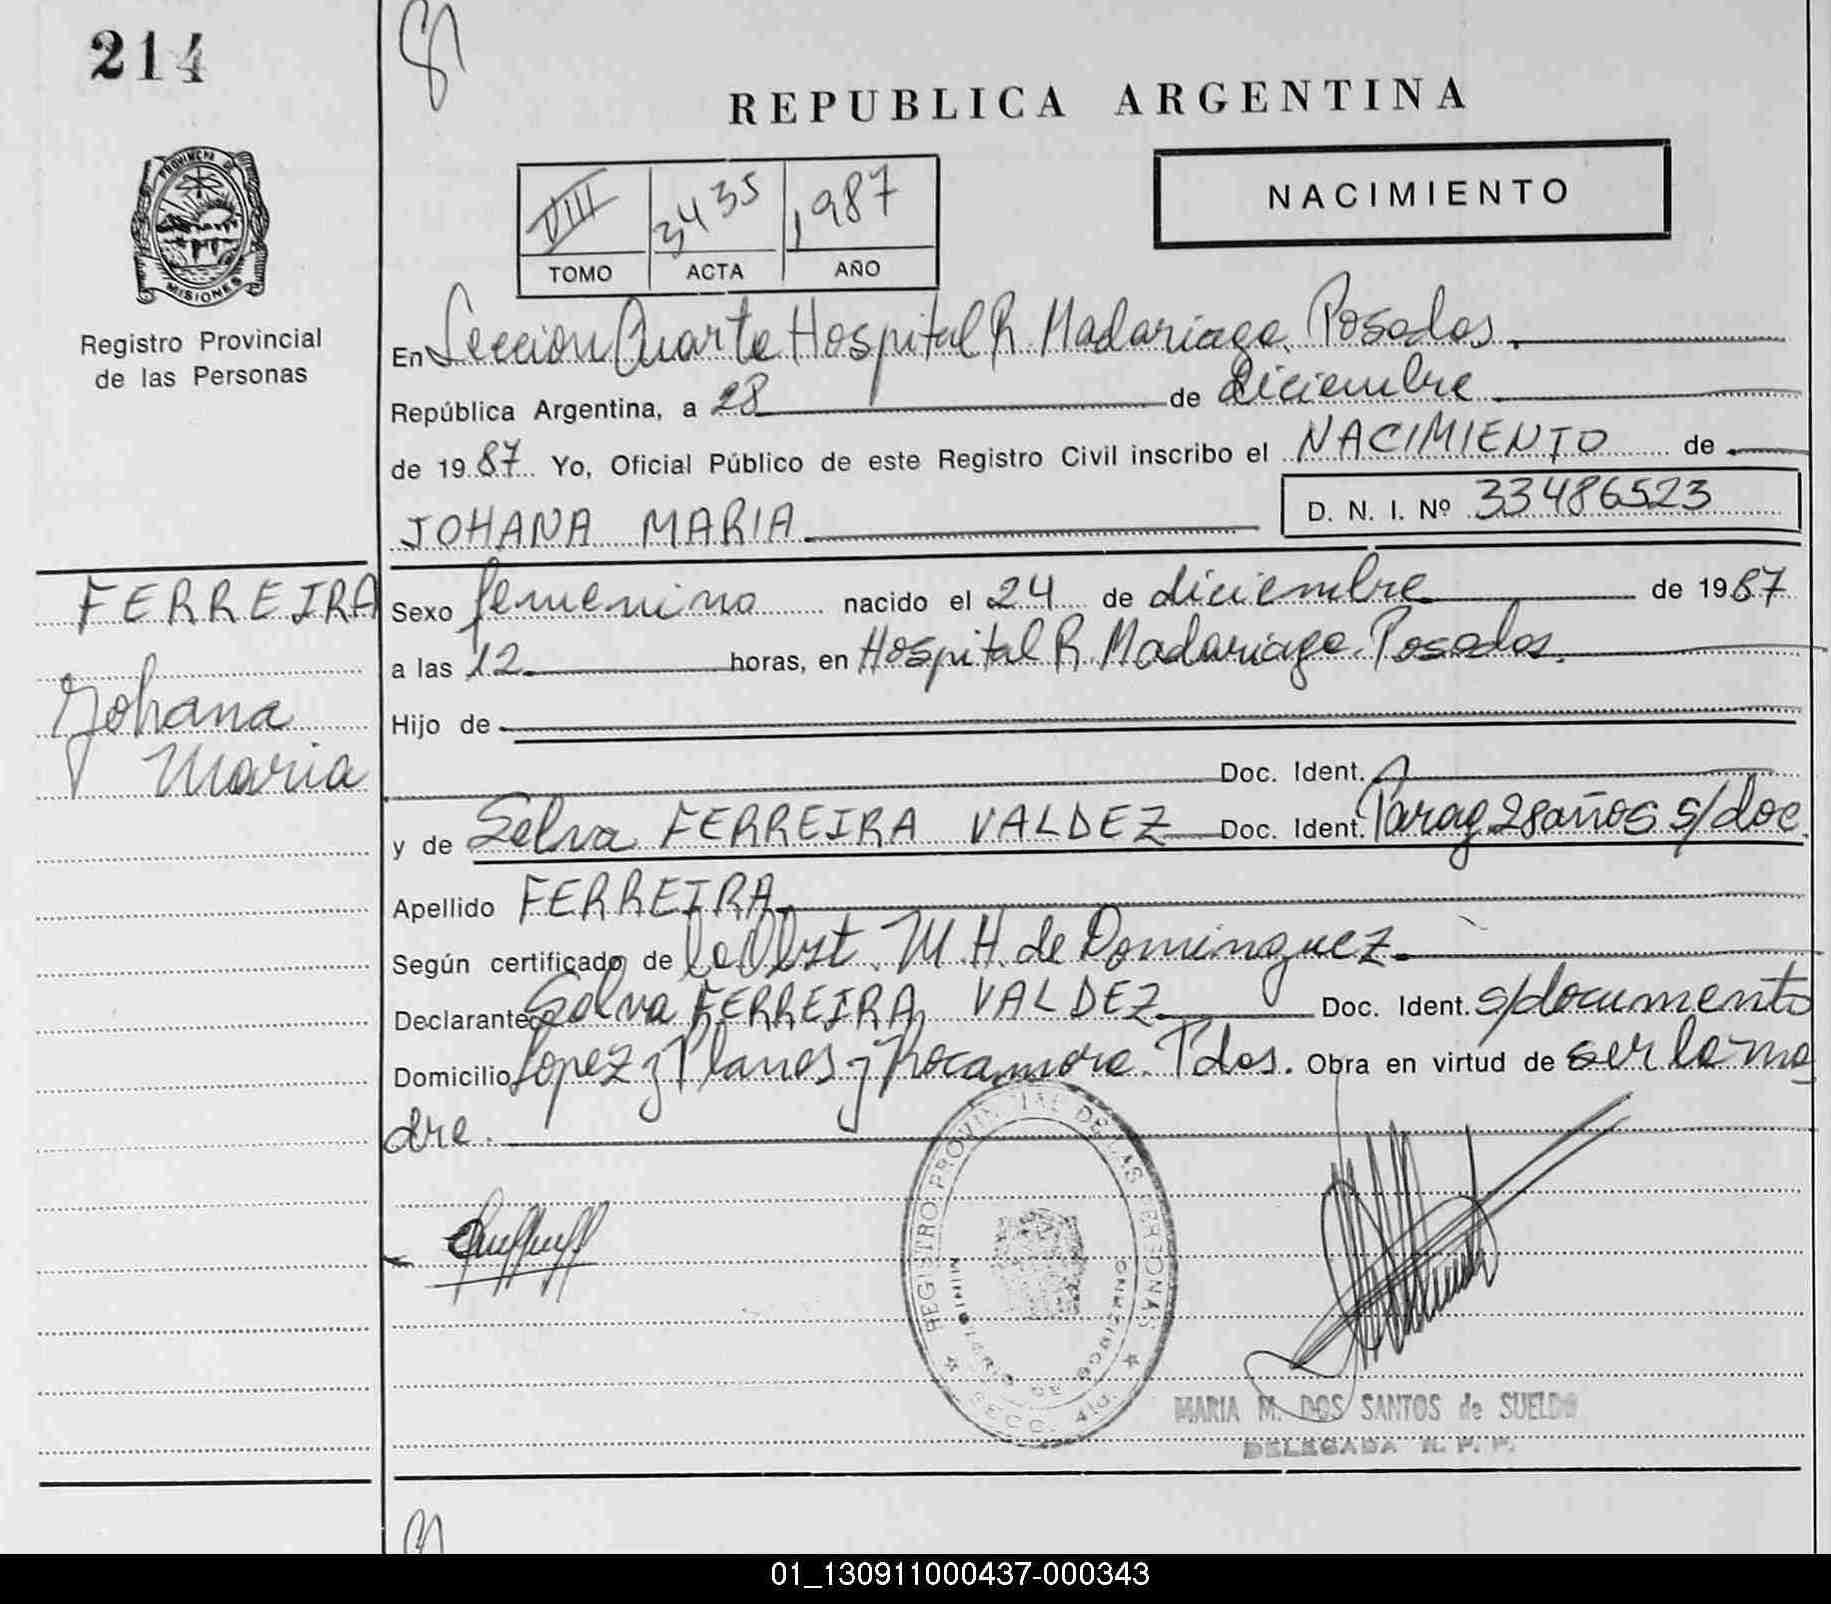 214
REPUBLICA ARGENTINA
NACIMIENTO
VIII 3435 1987
TOMO ACTA AÑO
PROVINCIA DE MISIONES
Registro Provincial
de las Personas
En Seccion Cuarta Hospital R. Madariaga. Posadas.
República Argentina, a 28 de diciembre
de 1987 Yo, Oficial Público de este Registro Civil inscribo el NACIMIENTO de
JOHANA MARIA D. N. I. Nº 33486523
FERREIRA
Johana
Maria
Sexo femenino nacido el 24 de diciembre de 1987
a las 12 horas, en Hospital R. Madariaga. Posadas.
Hijo de
Doc. Ident.
y de Selva FERREIRA VALDEZ Doc. Ident. Parag 28 años s/doc.
Apellido FERREIRA
Según certificado de la Obst. M. H. de Dominguez
Declarante Selva FERREIRA VALDEZ Doc. Ident. s/documento
Domicilio Lopez y Planes y Rocamora. Pdas. Obra en virtud de ser la ma
dre.
REGISTRO PROVINCIAL DE LAS PERSONAS
MINISTERIO DE GOBIERNO
SECC. 4ta.
MARIA M. DOS SANTOS de SUELDO
DELEGADA R. P. P.
01_130911000437-000343